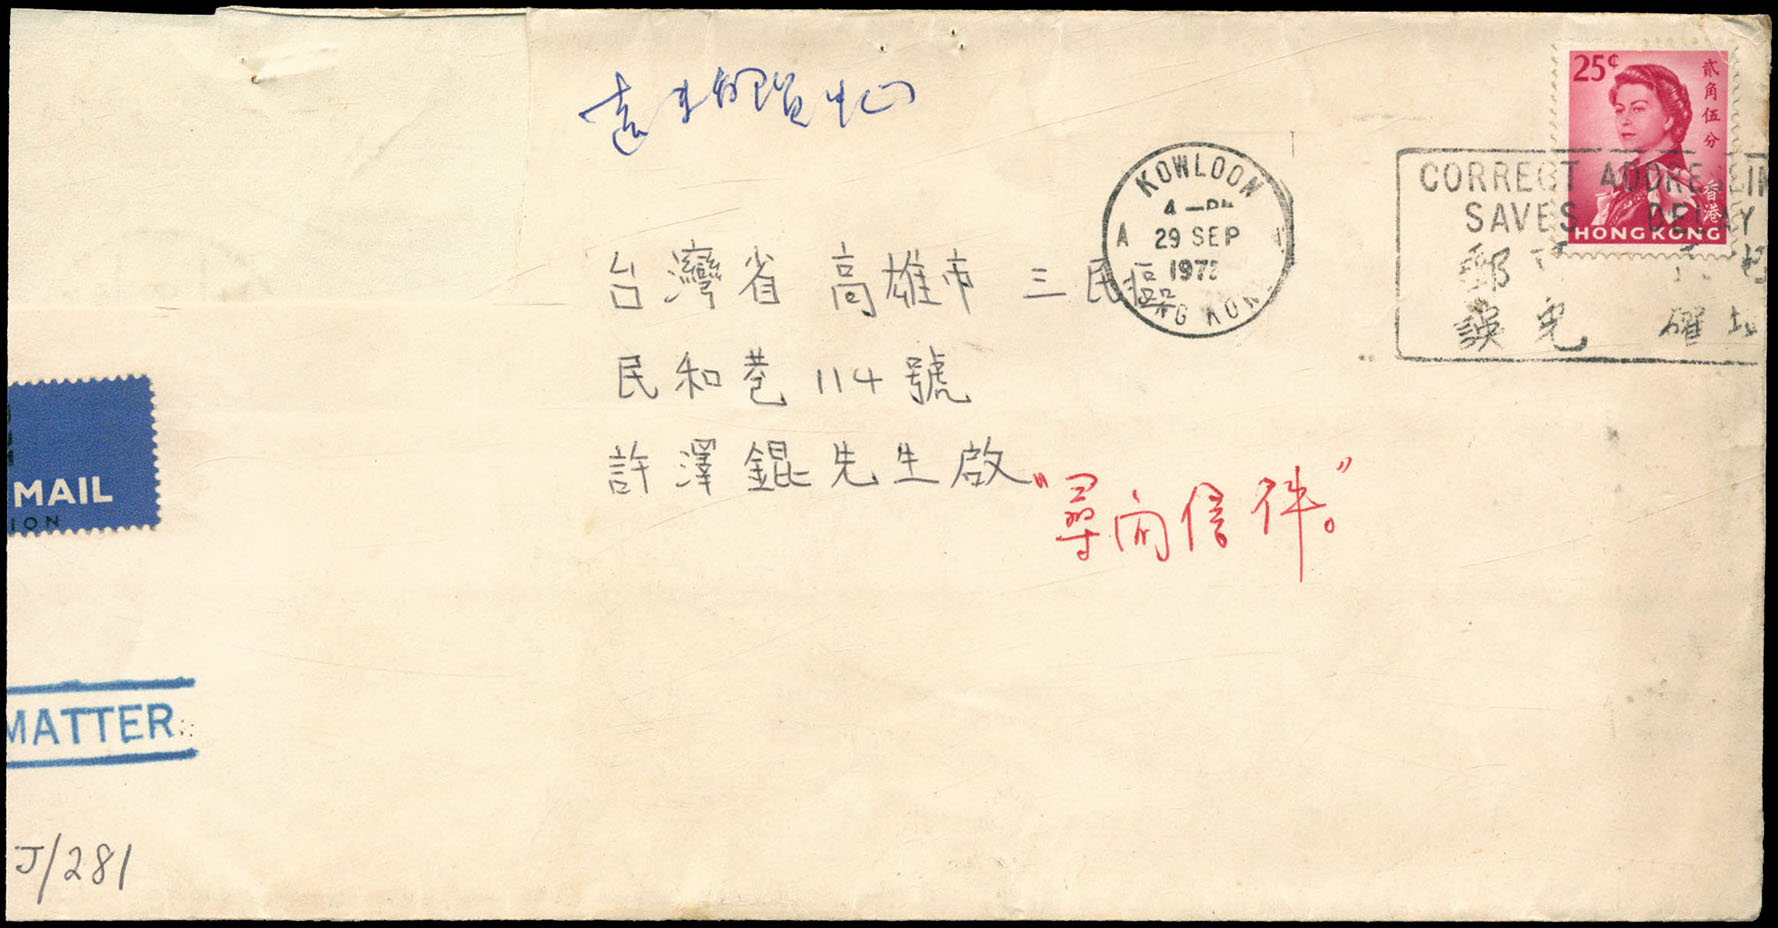 25¢
貳角伍分
香港
HONG KONG
KOWLOON
4 — PM
29 SEP
197
HONG KONG
CORRECT ADDRESSIN
SAVES DELAY
郵
誤免 確
台灣省 高雄市 三民區
民和巷 114 號
許澤錕先生啟
"尋向信件。"
MAIL
ION
MATTER
J/281